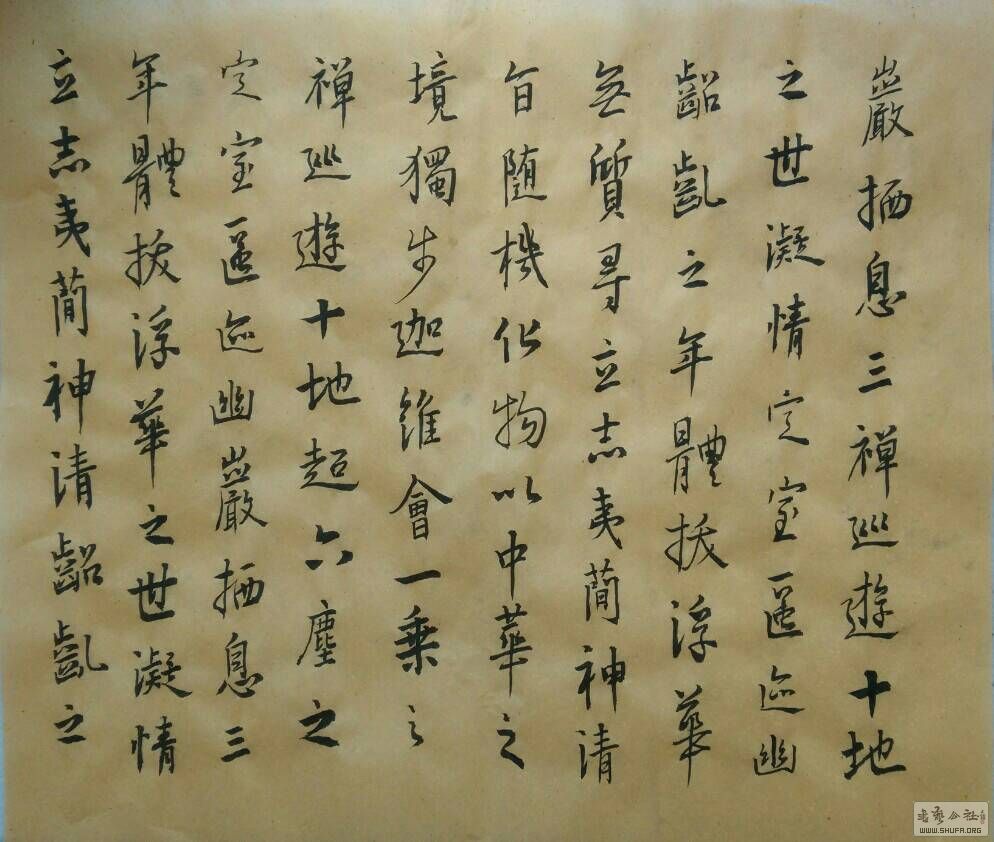 巖栖息三禪巡遊十地
之世凝情定室匿迹幽
齠齔之年體拔浮華
無質尋立志夷簡神清
旨随機化物以中華之
境獨步迦維會一乘之
禪巡遊十地超六塵之
定室匿迹幽巖栖息三
年體拔浮華之世凝情
立志夷簡神清齠齔之
书艺公社
WWW.SHUFA.ORG